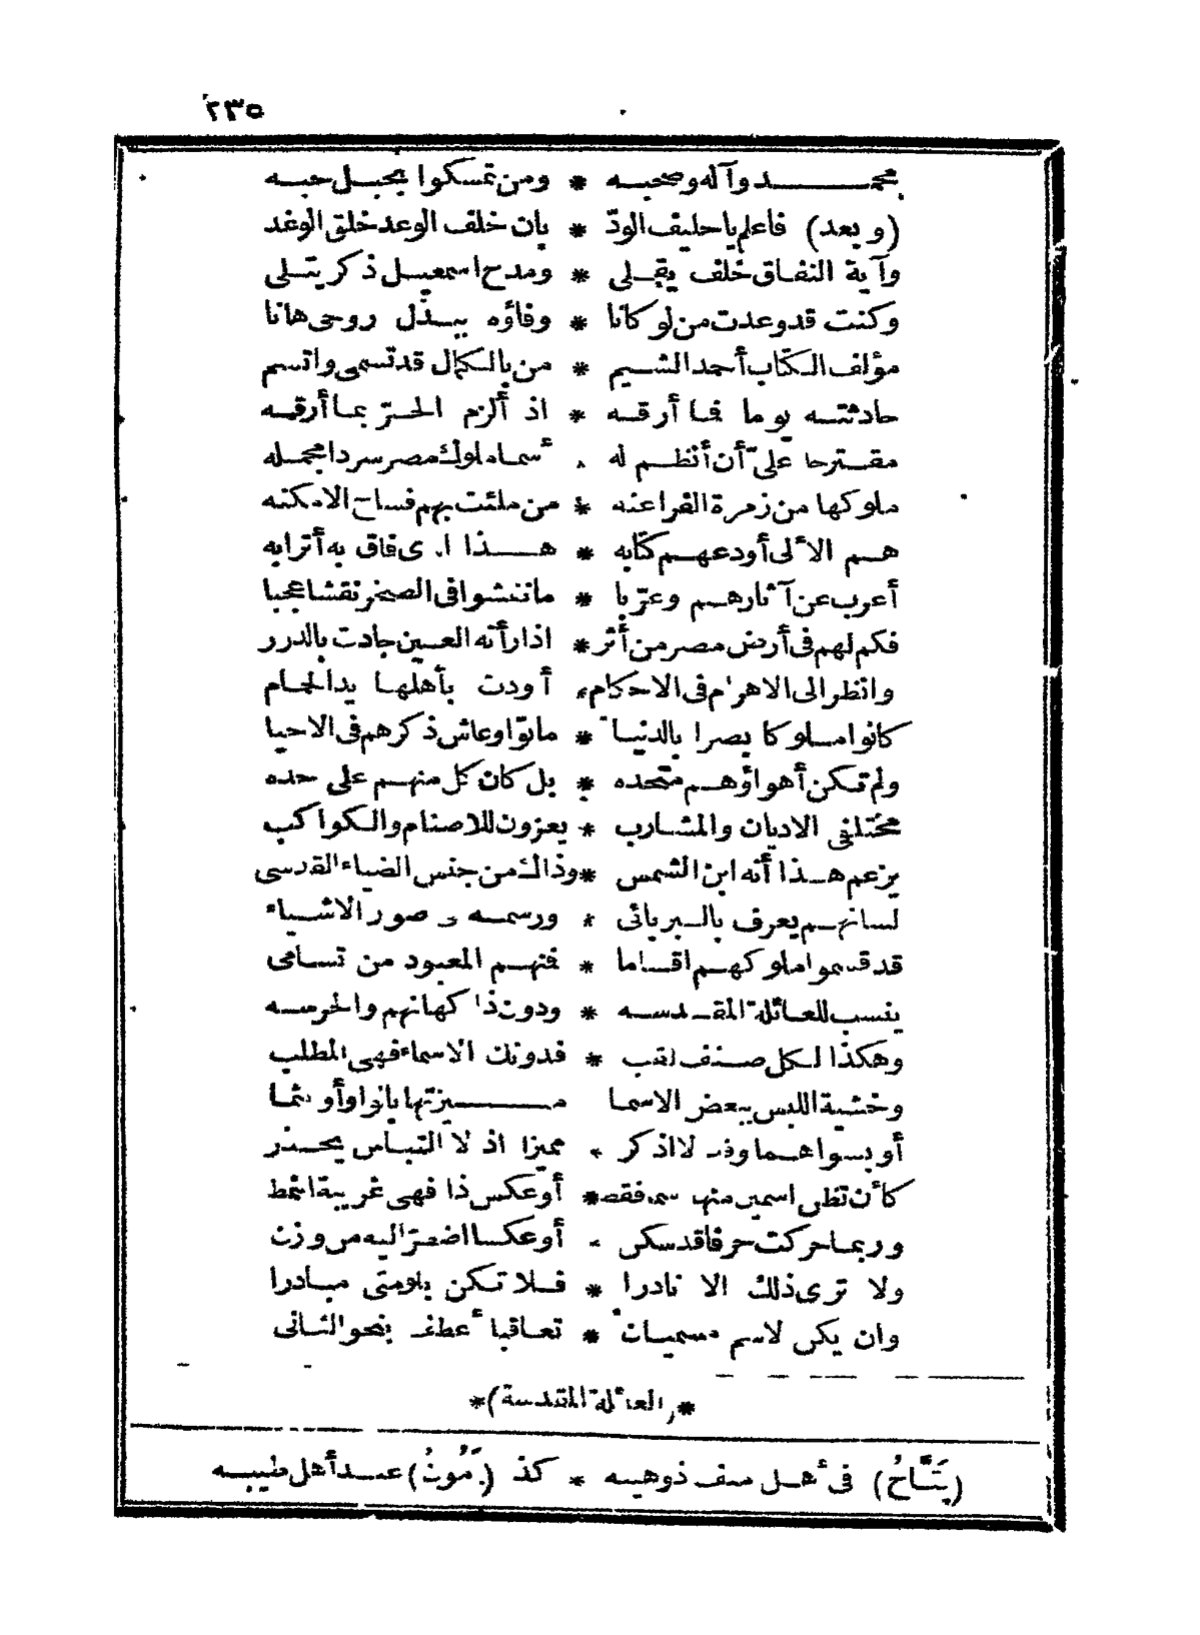 ٢٣٥
محمد وآله وصحبه * ومن تمسكوا بحبل حبه
(وبعد) فاعلم يا حليف الودّ * بان خلف الوعد خلق الوغد
وآية النفاق خلف يجلى * ومدح اسمعيل ذكر يتلى
وكنت قد وعدت من لو كانا * وفاؤه ببذل روحى هانا
مؤلف الكتاب أحمد الشيم * من بالكمال قد تسمى واتسم
حادثته يوما فما أرقه * اذ ألزم الحرّ بما أرقه
مقترحا علىّ أن أنظم له * أسماء ملوك مصر سردا مجمله
ملوكها من زمرة الفراعنه * من ملئت بهم فساح الامكنه
هم الألى أودعهم كتابه * هذا الذى فاق به أترابه
أعرب عن آثارهم وعرّبا * ما نقشوا فى الصخر نقشا عجبا
فكم لهم فى أرض مصر من أثر * اذا رأته العين جادت بالدرر
وانظر الى الاهرام فى الاحكام * أودت بأهلها يد الحمام
كانوا ملوكا بصرا بالدنيا * ماتوا وعاش ذكرهم فى الاحيا
ولم تكن أهواؤهم متحده * بل كان كل منهم على حده
مختلفى الاديان والمشارب * يعزون للاصنام والكواكب
يزعم هذا أنه ابن الشمس * وذاك من جنس الضياء القدسى
لسانهم يعرف بالبربائى * ورسمه صور الاشياء
قد قسموا ملوكهم اقساما * فمنهم المعبود من تسامى
ينسب للعائلة المقدسه * ودون ذا كهانهم والحرسه
وهكذا لكل صنف لقب * فدونك الاسماء فهى المطلب
وخشية اللبس ببعض الاسما * ميزتها
أو بسواهما وذ لا اذكر * مميزا اذ لا التباس يحذر
كأن تظن اسمين منها سما فقط * أو عكس ذا فهى غريبة النمط
وربما حركت حرفا قد سكن * أو عكسا اضطرّ اليه من وزن
ولا ترى ذلك الا نادرا * فلا تكن بلومتى مبادرا
وان يكن لاسم مسميان * تعاقبا أعطف بنحو الثانى
*(العائلة المقدسة)*
(پَتَّاحُ) فى أهل منف ذو هيبه * كذا (أَمُونُ) عند أهل طيبه